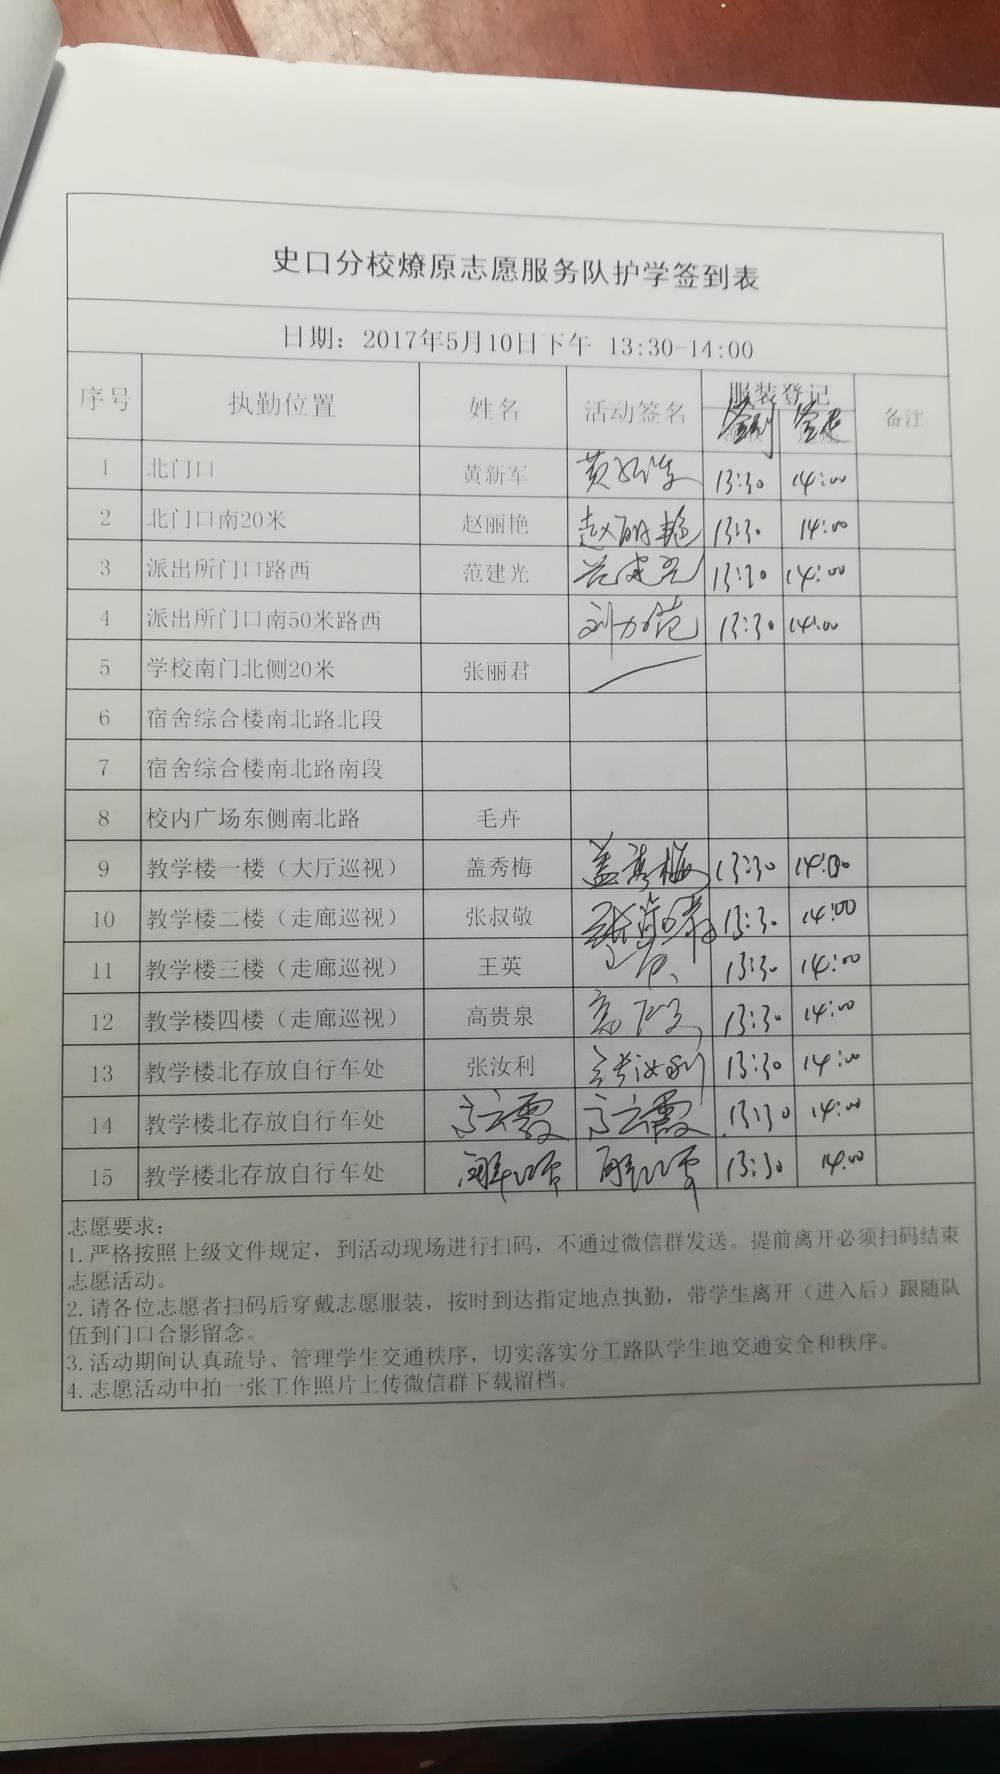 史口分校燎原志愿服务队护学签到表
日期：2017年5月10日下午 13:30-14:00
序号 执勤位置 姓名 活动签名 服装登记 备注
签到 签退
1 北门口 黄新军 13:30 14:00
2 北门口南20米 赵丽艳 赵丽艳 13:30 14:00
3 派出所门口路西 范建光 范建光 13:30 14:00
4 派出所门口南50米路西 13:30 14:00
5 学校南门北侧20米 张丽君
6 宿舍综合楼南北路北段
7 宿舍综合楼南北路南段
8 校内广场东侧南北路 毛卉
9 教学楼一楼（大厅巡视） 盖秀梅 盖秀梅 13:30 14:00
10 教学楼二楼（走廊巡视） 张叔敬 13:30 14:00
11 教学楼三楼（走廊巡视） 王英 王英 13:30 14:00
12 教学楼四楼（走廊巡视） 高贵泉 13:30 14:00
13 教学楼北存放自行车处 张汝利 张汝利 13:30 14:00
14 教学楼北存放自行车处 13:30 14:00
15 教学楼北存放自行车处 13:30 14:00
志愿要求：
1. 严格按照上级文件规定，到活动现场进行扫码，不通过微信群发送。提前离开必须扫码结束
志愿活动。
2. 请各位志愿者扫码后穿戴志愿服装，按时到达指定地点执勤，带学生离开（进入后）跟随队
伍到门口合影留念。
3. 活动期间认真疏导、管理学生交通秩序，切实落实分工路队学生地交通安全和秩序。
4. 志愿活动中拍一张工作照片上传微信群下载留档。